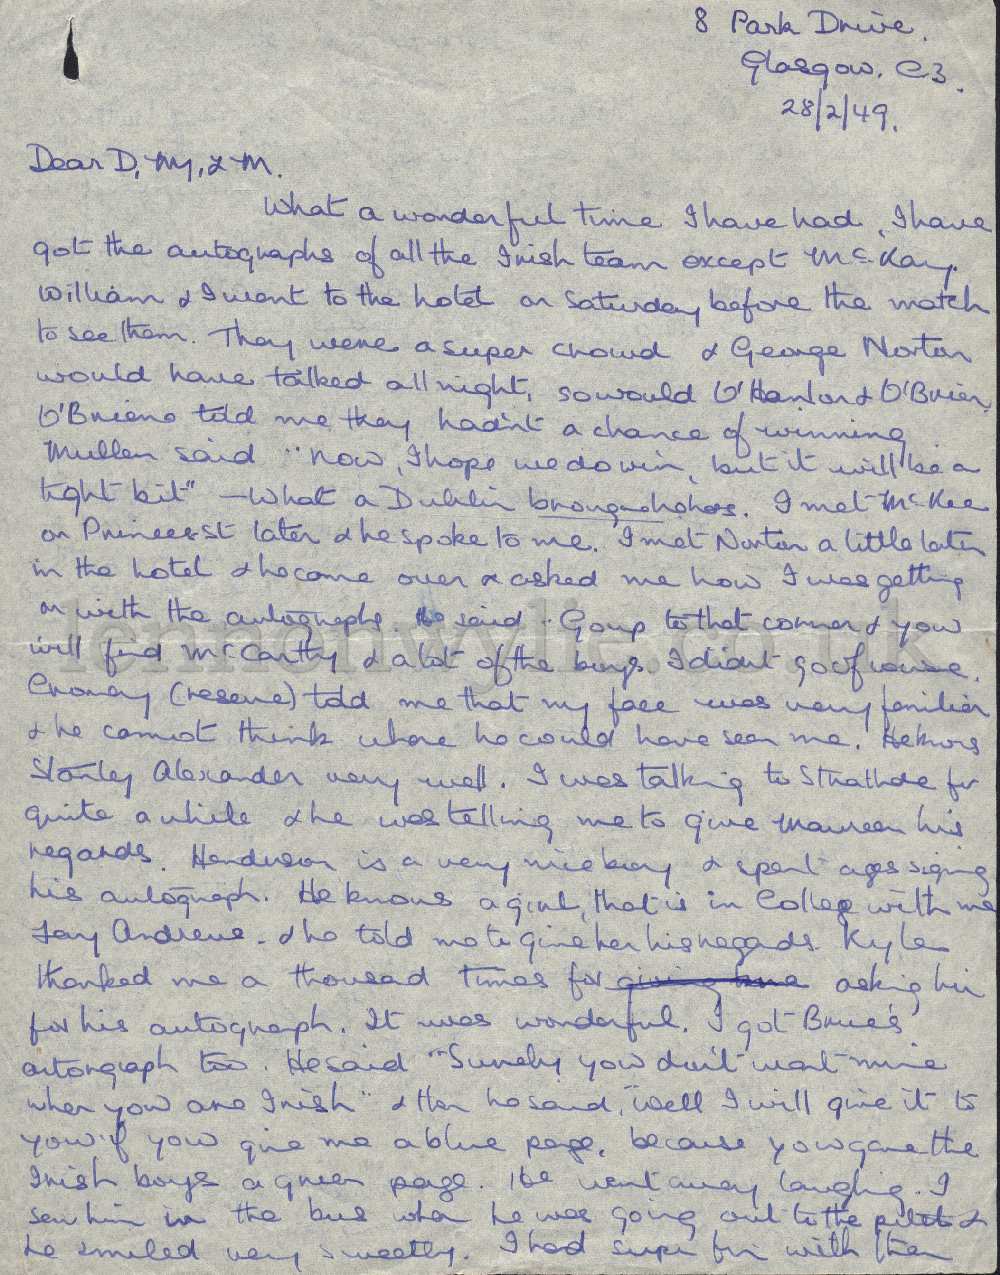 8 Park Drive.
Glasgow. C3.
28/2/49.
Dear D, My, & M.
What a wonderful time I have had, I have
got the autographs of all the Irish team except McKay.
William & I went to the hotel on Saturday before the match
to see them. They were a super crowd & George Norton
would have talked all night, so would O'Hanlon & O'Brien.
O'Briens told me they hadn't a chance of winning
Mullen said "Now, I hope we do win, but it will be a
tight bit" - What a Dublin brough
I met McKee
on Princes st later & he spoke to me. I met Norton a little later
in the hotel & he came over & asked me how I was getting
on with the autographs. He said "Go up to that corner & you
will find McCarthy & a lot of the boys. I didn't go of course.
Cromey (reserve) told me that my face was very familiar
& he cannot think where he could have seen me. He knows
Stanley Alexander very well. I was talking to Strathdee for
quite a while & he was telling me to give Maureen his
regards. Henderson is a very nice boy & spent ages signing
his autograph. He knows a girl, that is in College with me
Andrews - & he told me to give her his regards. Kyle
thanked me a thousad times for giving him asking him
for his autograph. It was wonderful. I got Bruce's
autorgraph too. He said "Surely you don't want mine
when you are Irish" & then he said, "well I will give it to
you if you give me a blue page, because you gave the
Irish boys a green page. He went away laughing. I
saw him in the bus when he was going out to the pitch &
he smiled very sweetly. I had super fun with them
lennonwylie.co.uk